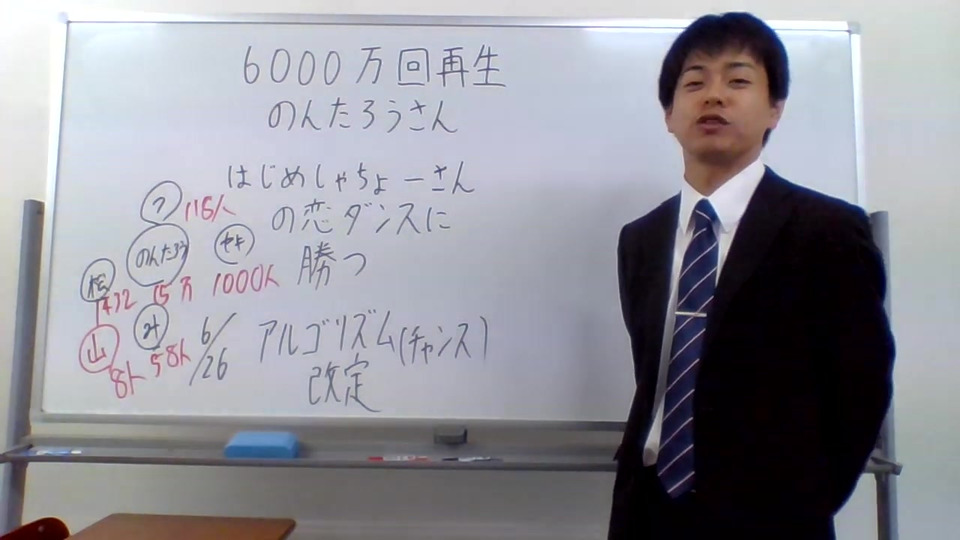 6000万回再生
のんたろうさん
はじめしゃちょーさん
の恋ダンスに
勝つ
? 116人
のんたろう 15万
セキ 1000人
432
山 8人
み 58人
6/26
アルゴリズム(チャンス)
改定